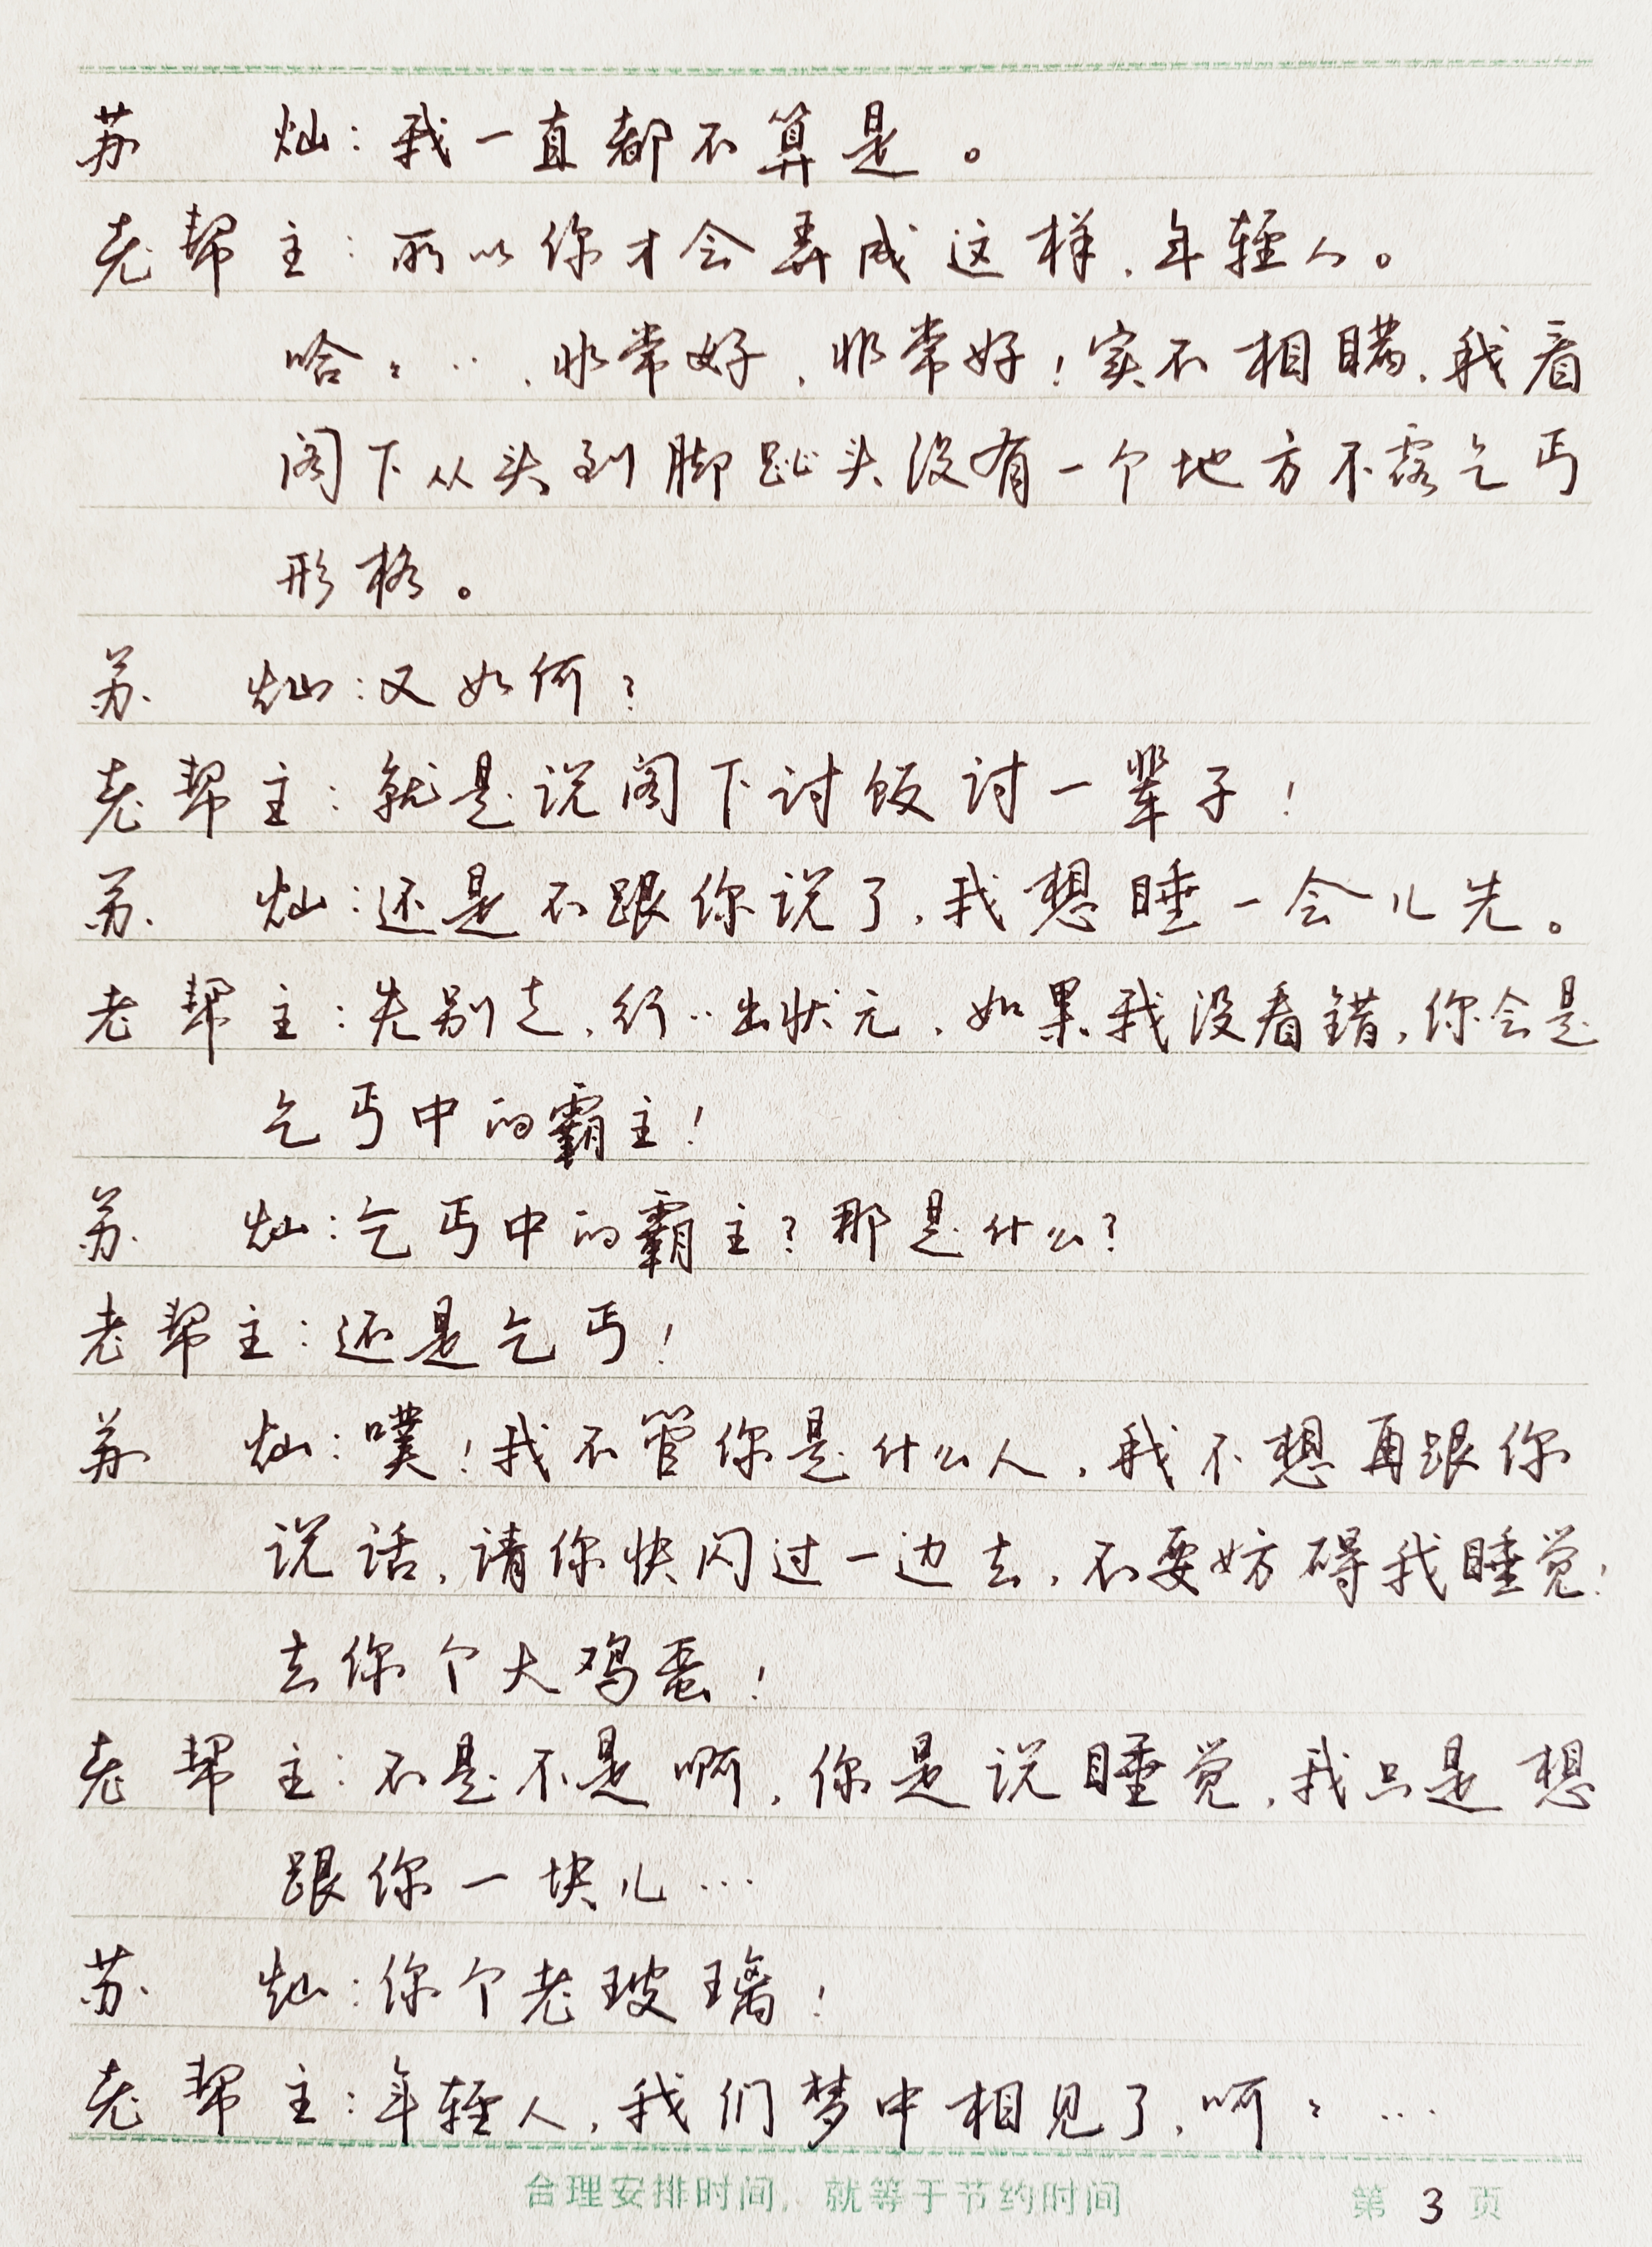 苏　灿：我一直都不算是。
老帮主：所以你才会弄成这样，年轻人。
哈々…，非常好，非常好！实不相瞒，我看
阁下从头到脚趾头没有一个地方不露乞丐
形格。
苏　灿：又如何？
老帮主：就是说阁下讨饭讨一辈子！
苏　灿：还是不跟你说了，我想睡一会儿先。
老帮主：先别走，行‥出状元，如果我没看错，你会是
乞丐中的霸主！
苏　灿：乞丐中的霸主？那是什么？
老帮主：还是乞丐！
苏　灿：噗！我不管你是什么人，我不想再跟你
说话，请你快闪过一边去，不要妨碍我睡觉！
去你个大鸡蛋！
老帮主：不是不是啊，你是说睡觉，我只是想
跟你一块儿…
苏　灿：你个老玻璃！
老帮主：年轻人，我们梦中相见了，呵々…
合理安排时间，就等于节约时间　第 3 页